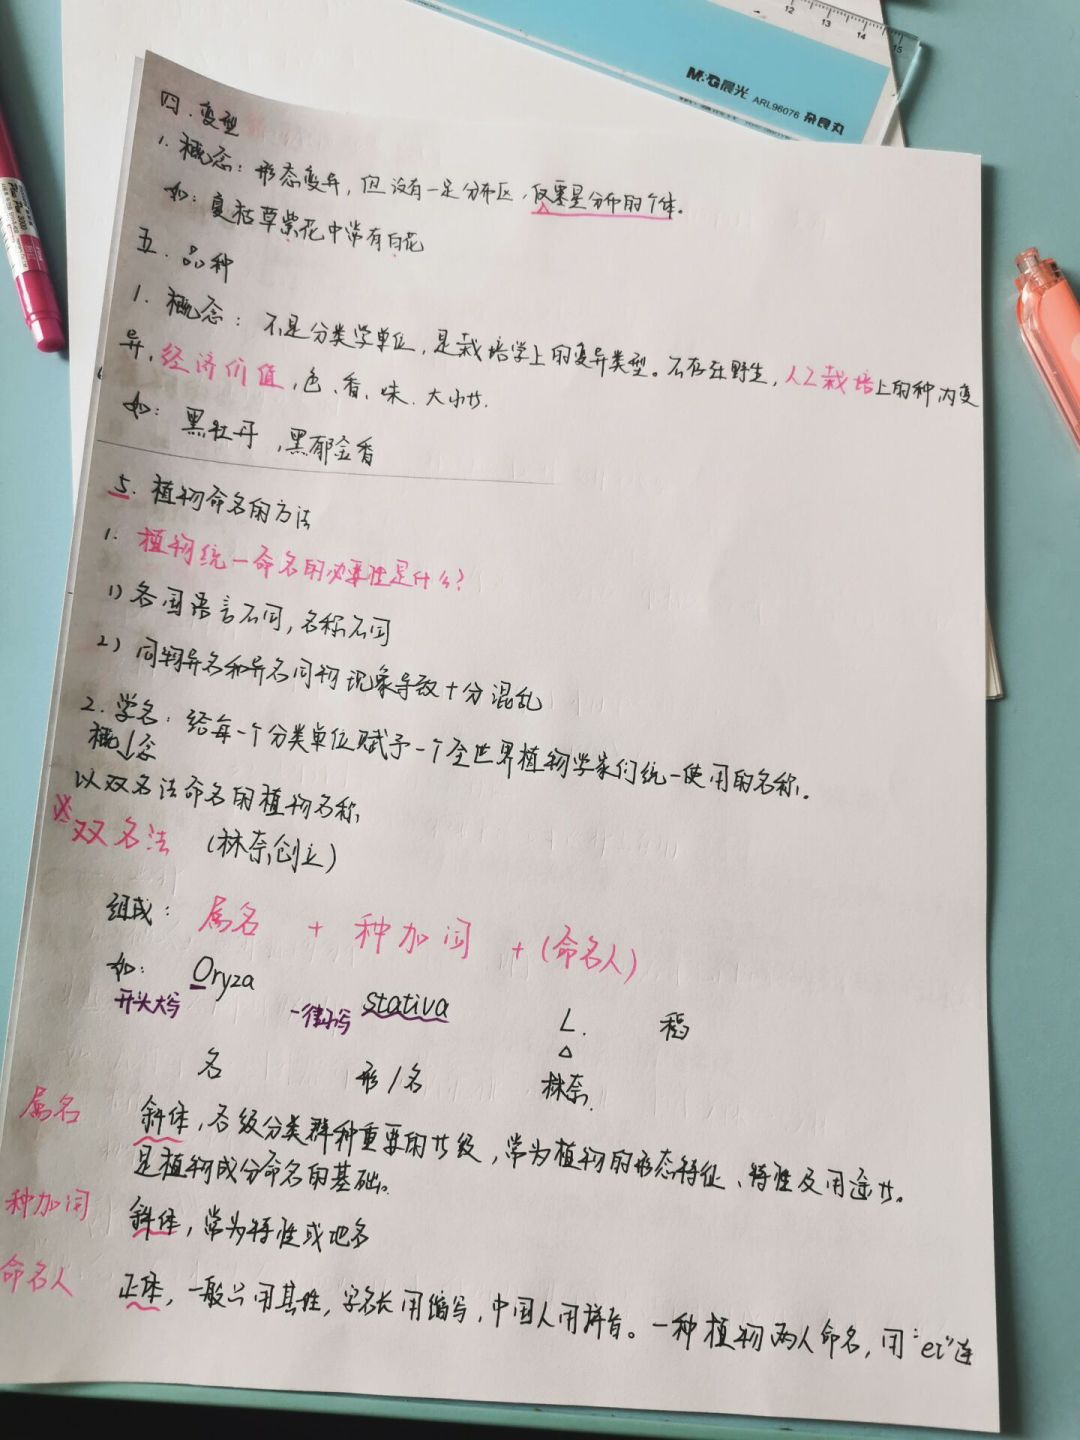 12 13 14 15
M&G晨光 ARL96076 杂良丸
四.变型
1.概念：形态变异，但没有一定分布区，仅零星分布的个体。
如：夏枯草紫花中常有白花
五.品种
1.概念：不是分类学单位，是栽培学上的变异类型。不存在野生，人工栽培上的种内变
异，经济价值，色、香、味、大小等.
如：黑牡丹，黑郁金香
5.植物命名的方法
1.植物统一命名的必要性是什么？
1）各国语言不同，名称不同
2）同物异名和异名同物现象导致十分混乱
2.学名：给每一个分类单位赋予一个全世界植物学家们统一使用的名称。
概念
以双名法命名的植物名称
※双名法（林奈创立）
组成：属名 + 种加词 +（命名人）
如：Oryza stativa L. 稻
开头大写 一律小写
名 形/名 林奈.
属名 斜体，各级分类群种重要的等级，常为植物的形态特征、特性及用途等。
是植物成分命名的基础。
种加词 斜体，常为特性或地名
命名人 正体，一般只用其姓，字名长用缩写，中国人用拼音。一种植物两人命名，用"et"连